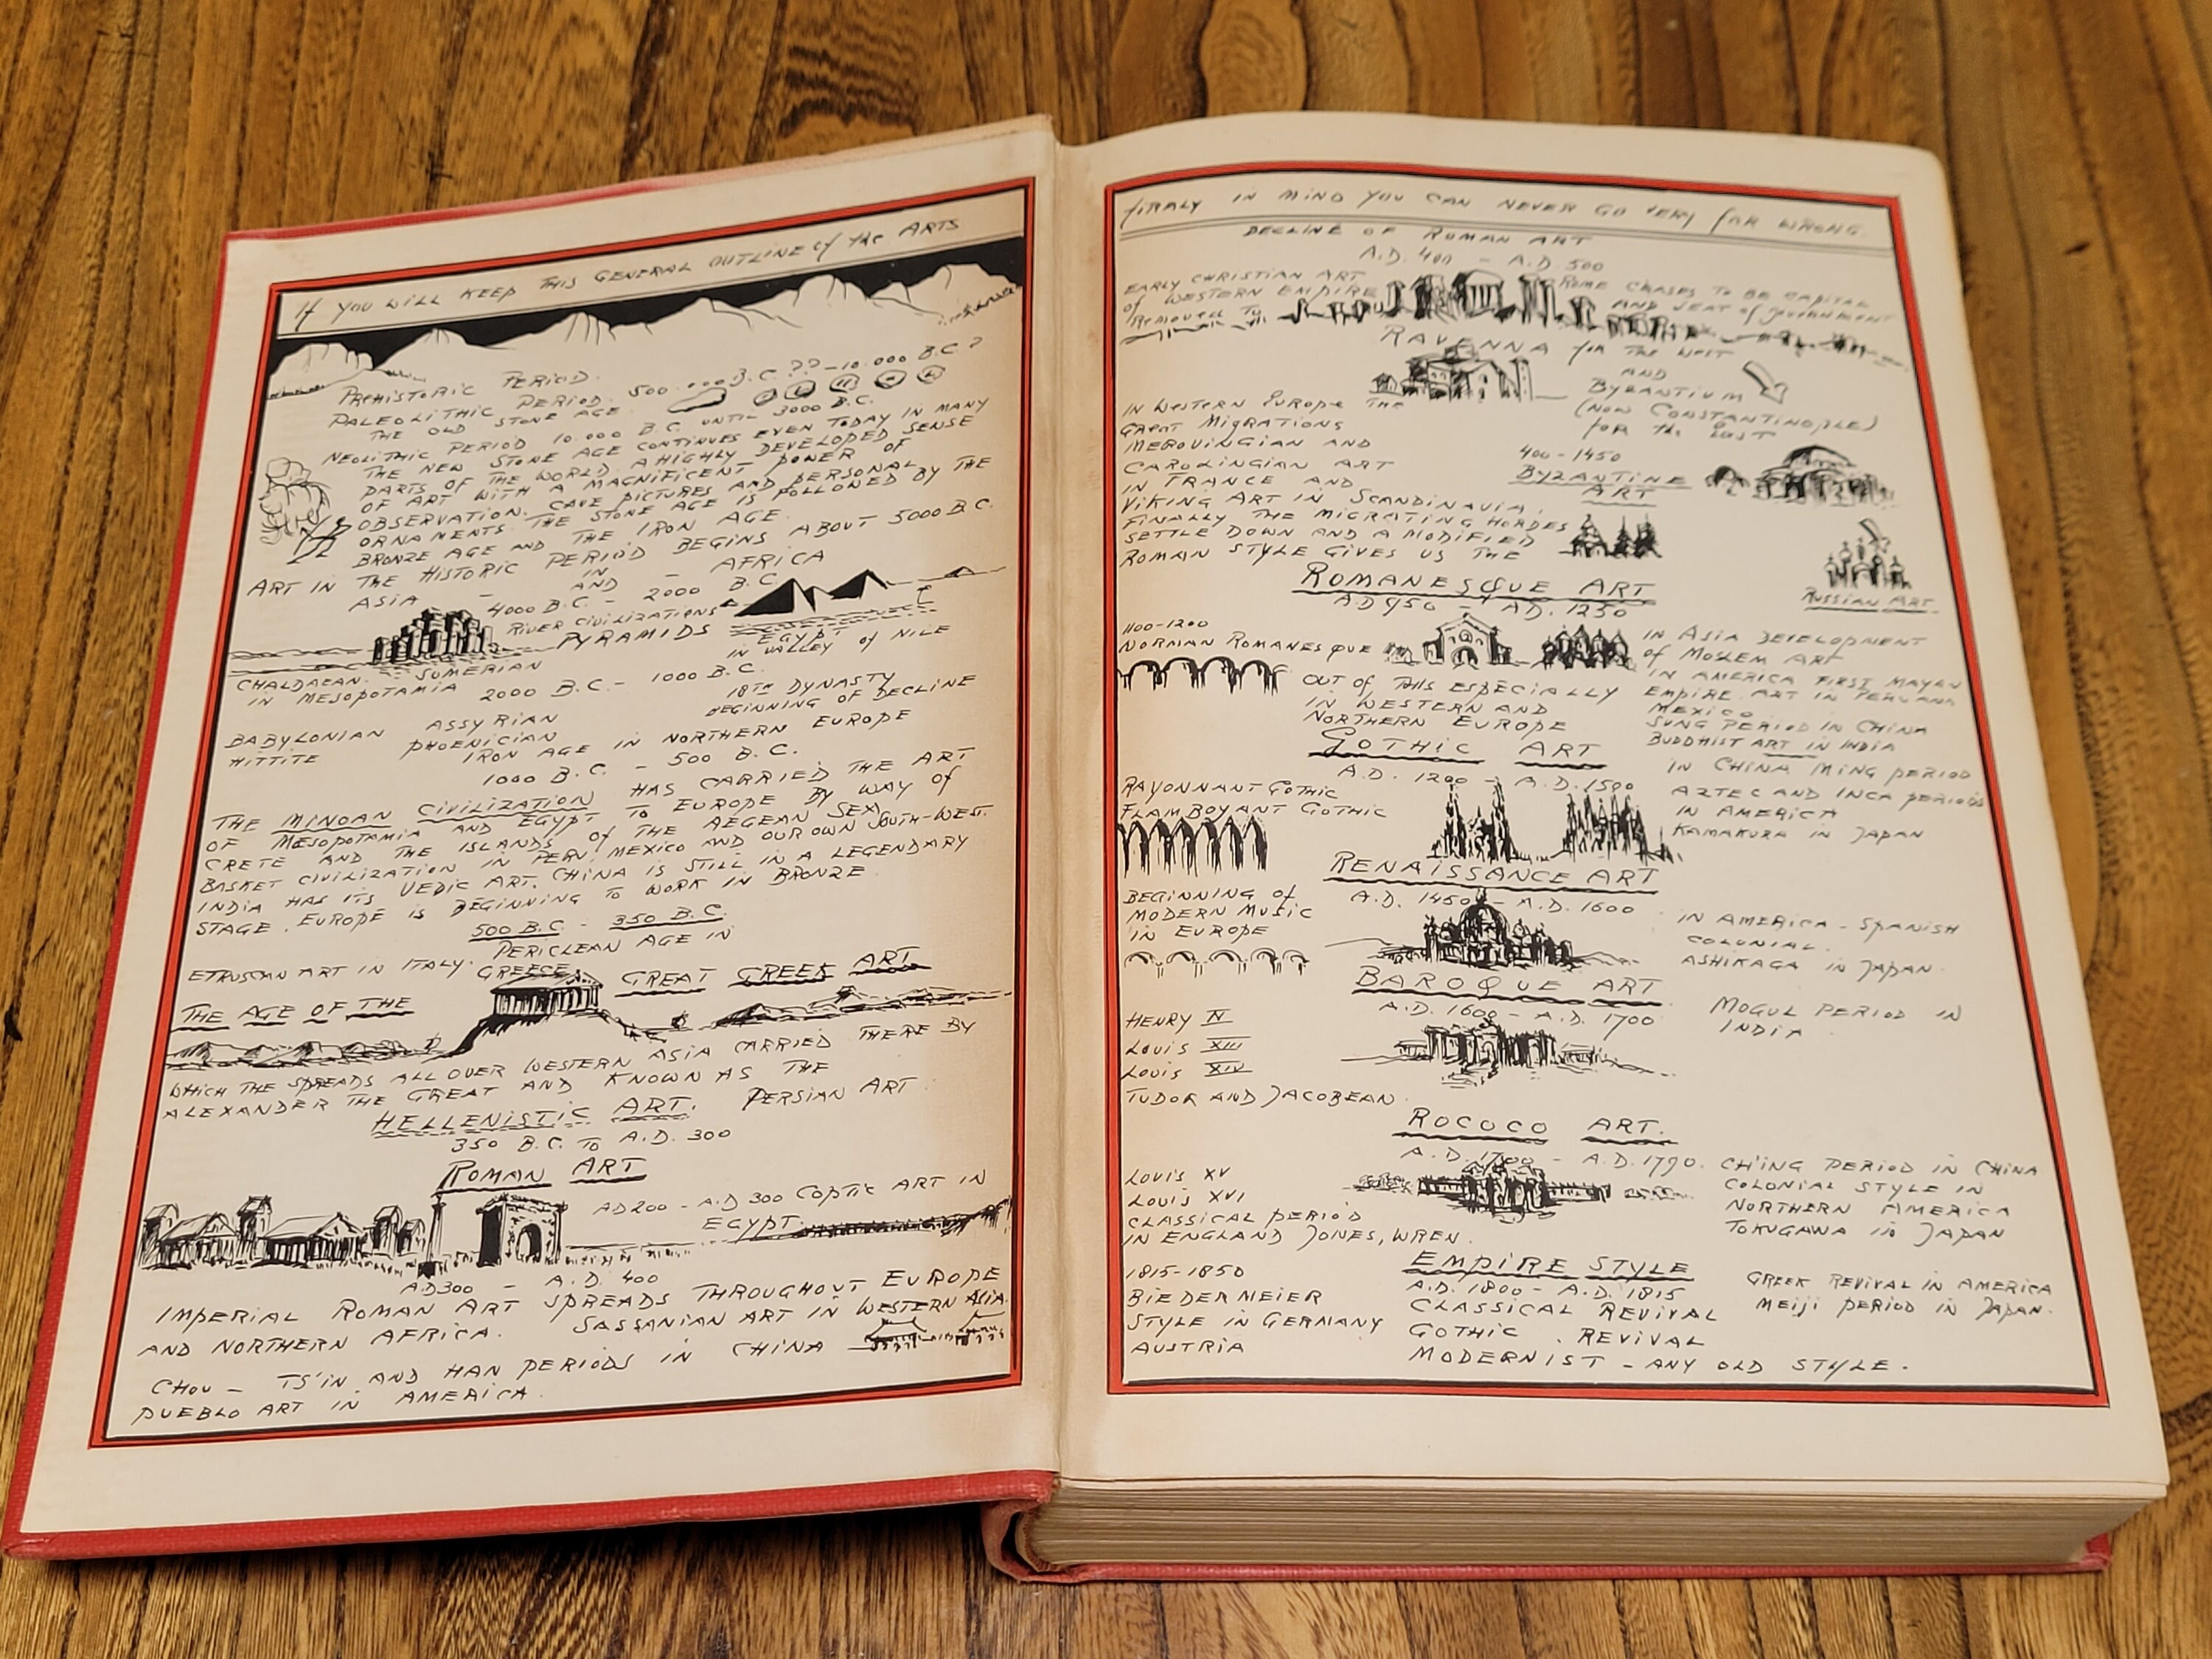 If YOU WILL KEEP THIS GENERAL OUTLINE of the ARTS
PREHISTORIC PERIOD.
PALEOLITHIC PERIOD. 500.000 B.C ?? - 10.000 B.C.?
THE OLD STONE AGE
NEOLITHIC PERIOD 10.000 B.C. UNTIL 3000 B.C.
THE NEW STONE AGE CONTINUES EVEN TODAY IN MANY
PARTS OF THE WORLD. A HIGHLY DEVELOPED SENSE
OF ART WITH A MAGNIFICENT POWER OF
OBSERVATION. CAVE PICTURES AND PERSONAL
ORNAMENTS. THE STONE AGE IS FOLLOWED BY THE
BRONZE AGE AND THE IRON AGE.
ART IN THE HISTORIC PERIOD BEGINS ABOUT 5000 B.C.
IN
ASIA - AND - AFRICA
4000 B.C. - 2000 B.C.
RIVER CIVILIZATIONS
PYRAMIDS
EGYPT
IN VALLEY of NILE
CHALDAEAN. SUMERIAN
IN MESOPOTAMIA
2000 B.C. - 1000 B.C.
18TH DYNASTY
BEGINNING OF DECLINE
BABYLONIAN ASSYRIAN
HITTITE PHOENICIAN
IRON AGE IN NORTHERN EUROPE
1000 B.C. - 500 B.C.
THE MINOAN CIVILIZATION HAS CARRIED THE ART
OF MESOPOTAMIA AND EGYPT TO EUROPE BY WAY OF
CRETE AND THE ISLANDS of THE AEGEAN SEA
BASKET CIVILIZATION IN PERU, MEXICO AND OUR OWN SOUTH-WEST.
INDIA HAS ITS VEDIC ART. CHINA IS STILL IN A LEGENDARY
STAGE. EUROPE IS BEGINNING TO WORK IN BRONZE.
500 B.C - 350 B.C.
PERICLEAN AGE IN
ETRUSCAN ART IN ITALY. GREECE
THE AGE OF THE GREAT GREEK ART
WHICH THE SPREADS ALL OVER WESTERN ASIA CARRIED THERE BY
ALEXANDER THE GREAT AND KNOWN AS THE
HELLENISTIC ART. PERSIAN ART
350 B.C. TO A.D. 300
ROMAN ART
AD 200 - A.D 300 COPTIC ART IN
EGYPT
A.D 300 - A.D. 400
IMPERIAL ROMAN ART SPREADS THROUGHOUT EUROPE
AND NORTHERN AFRICA. SASSANIAN ART IN WESTERN ASIA.
CHOU - TS'IN AND HAN PERIODS IN CHINA
PUEBLO ART IN AMERICA.
FIRMLY IN MIND YOU CAN NEVER GO VERY FAR WRONG.
DECLINE OF ROMAN ART
A.D. 400 - A.D. 500
EARLY CHRISTIAN ART
of WESTERN EMPIRE
Removed To
ROME CEASES TO BE CAPITAL
AND SEAT of GOVERNMENT
RAVENNA for THE WEST
AND
BYZANTIUM
(NOW CONSTANTINOPLE)
for the EAST
IN WESTERN EUROPE THE
GREAT MIGRATIONS
MEROVINGIAN AND
CAROLINGIAN ART
IN FRANCE AND
VIKING ART IN SCANDINAVIA.
FINALLY THE MIGRATING HORDES
SETTLE DOWN AND A MODIFIED
ROMAN STYLE GIVES US THE
400-1450
BYZANTINE
ART
RUSSIAN ART
ROMANESQUE ART
A.D 950 - A.D. 1250
1100-1200
NORMAN ROMANESQUE
IN ASIA DEVELOPMENT
of MOSLEM ART
IN AMERICA FIRST MAYAN
EMPIRE. ART IN PERU AND
MEXICO
SUNG PERIOD IN CHINA
BUDDHIST ART IN INDIA
OUT of THIS ESPECIALLY
IN WESTERN AND
NORTHERN EUROPE
GOTHIC ART
A.D. 1200 - A.D. 1500
RAYONNANT GOTHIC
FLAMBOYANT GOTHIC
IN CHINA MING PERIOD
AZTEC AND INCA PERIODS
IN AMERICA
KAMAKURA IN JAPAN
RENAISSANCE ART
A.D. 1450 - A.D. 1600
BEGINNING of
MODERN MUSIC
IN EUROPE
IN AMERICA - SPANISH
COLONIAL.
ASHIKAGA IN JAPAN.
BAROQUE ART
A.D. 1600 - A.D. 1700
HENRY IV
LOUIS XIII
LOUIS XIV
TUDOR AND JACOBEAN.
MOGUL PERIOD IN
INDIA
ROCOCO ART.
A.D. 1700 - A.D. 1790.
LOUIS XV
LOUIS XVI
CLASSICAL PERIOD
IN ENGLAND JONES, WREN.
CH'ING PERIOD IN CHINA
COLONIAL STYLE IN
NORTHERN AMERICA
TOKUGAWA IN JAPAN
EMPIRE STYLE
A.D. 1800 - A.D. 1815
CLASSICAL REVIVAL
GOTHIC . REVIVAL
MODERNIST - ANY OLD STYLE.
1815-1850
BIEDERMEIER
STYLE IN GERMANY
AUSTRIA
GREEK REVIVAL IN AMERICA
MEIJI PERIOD IN JAPAN.